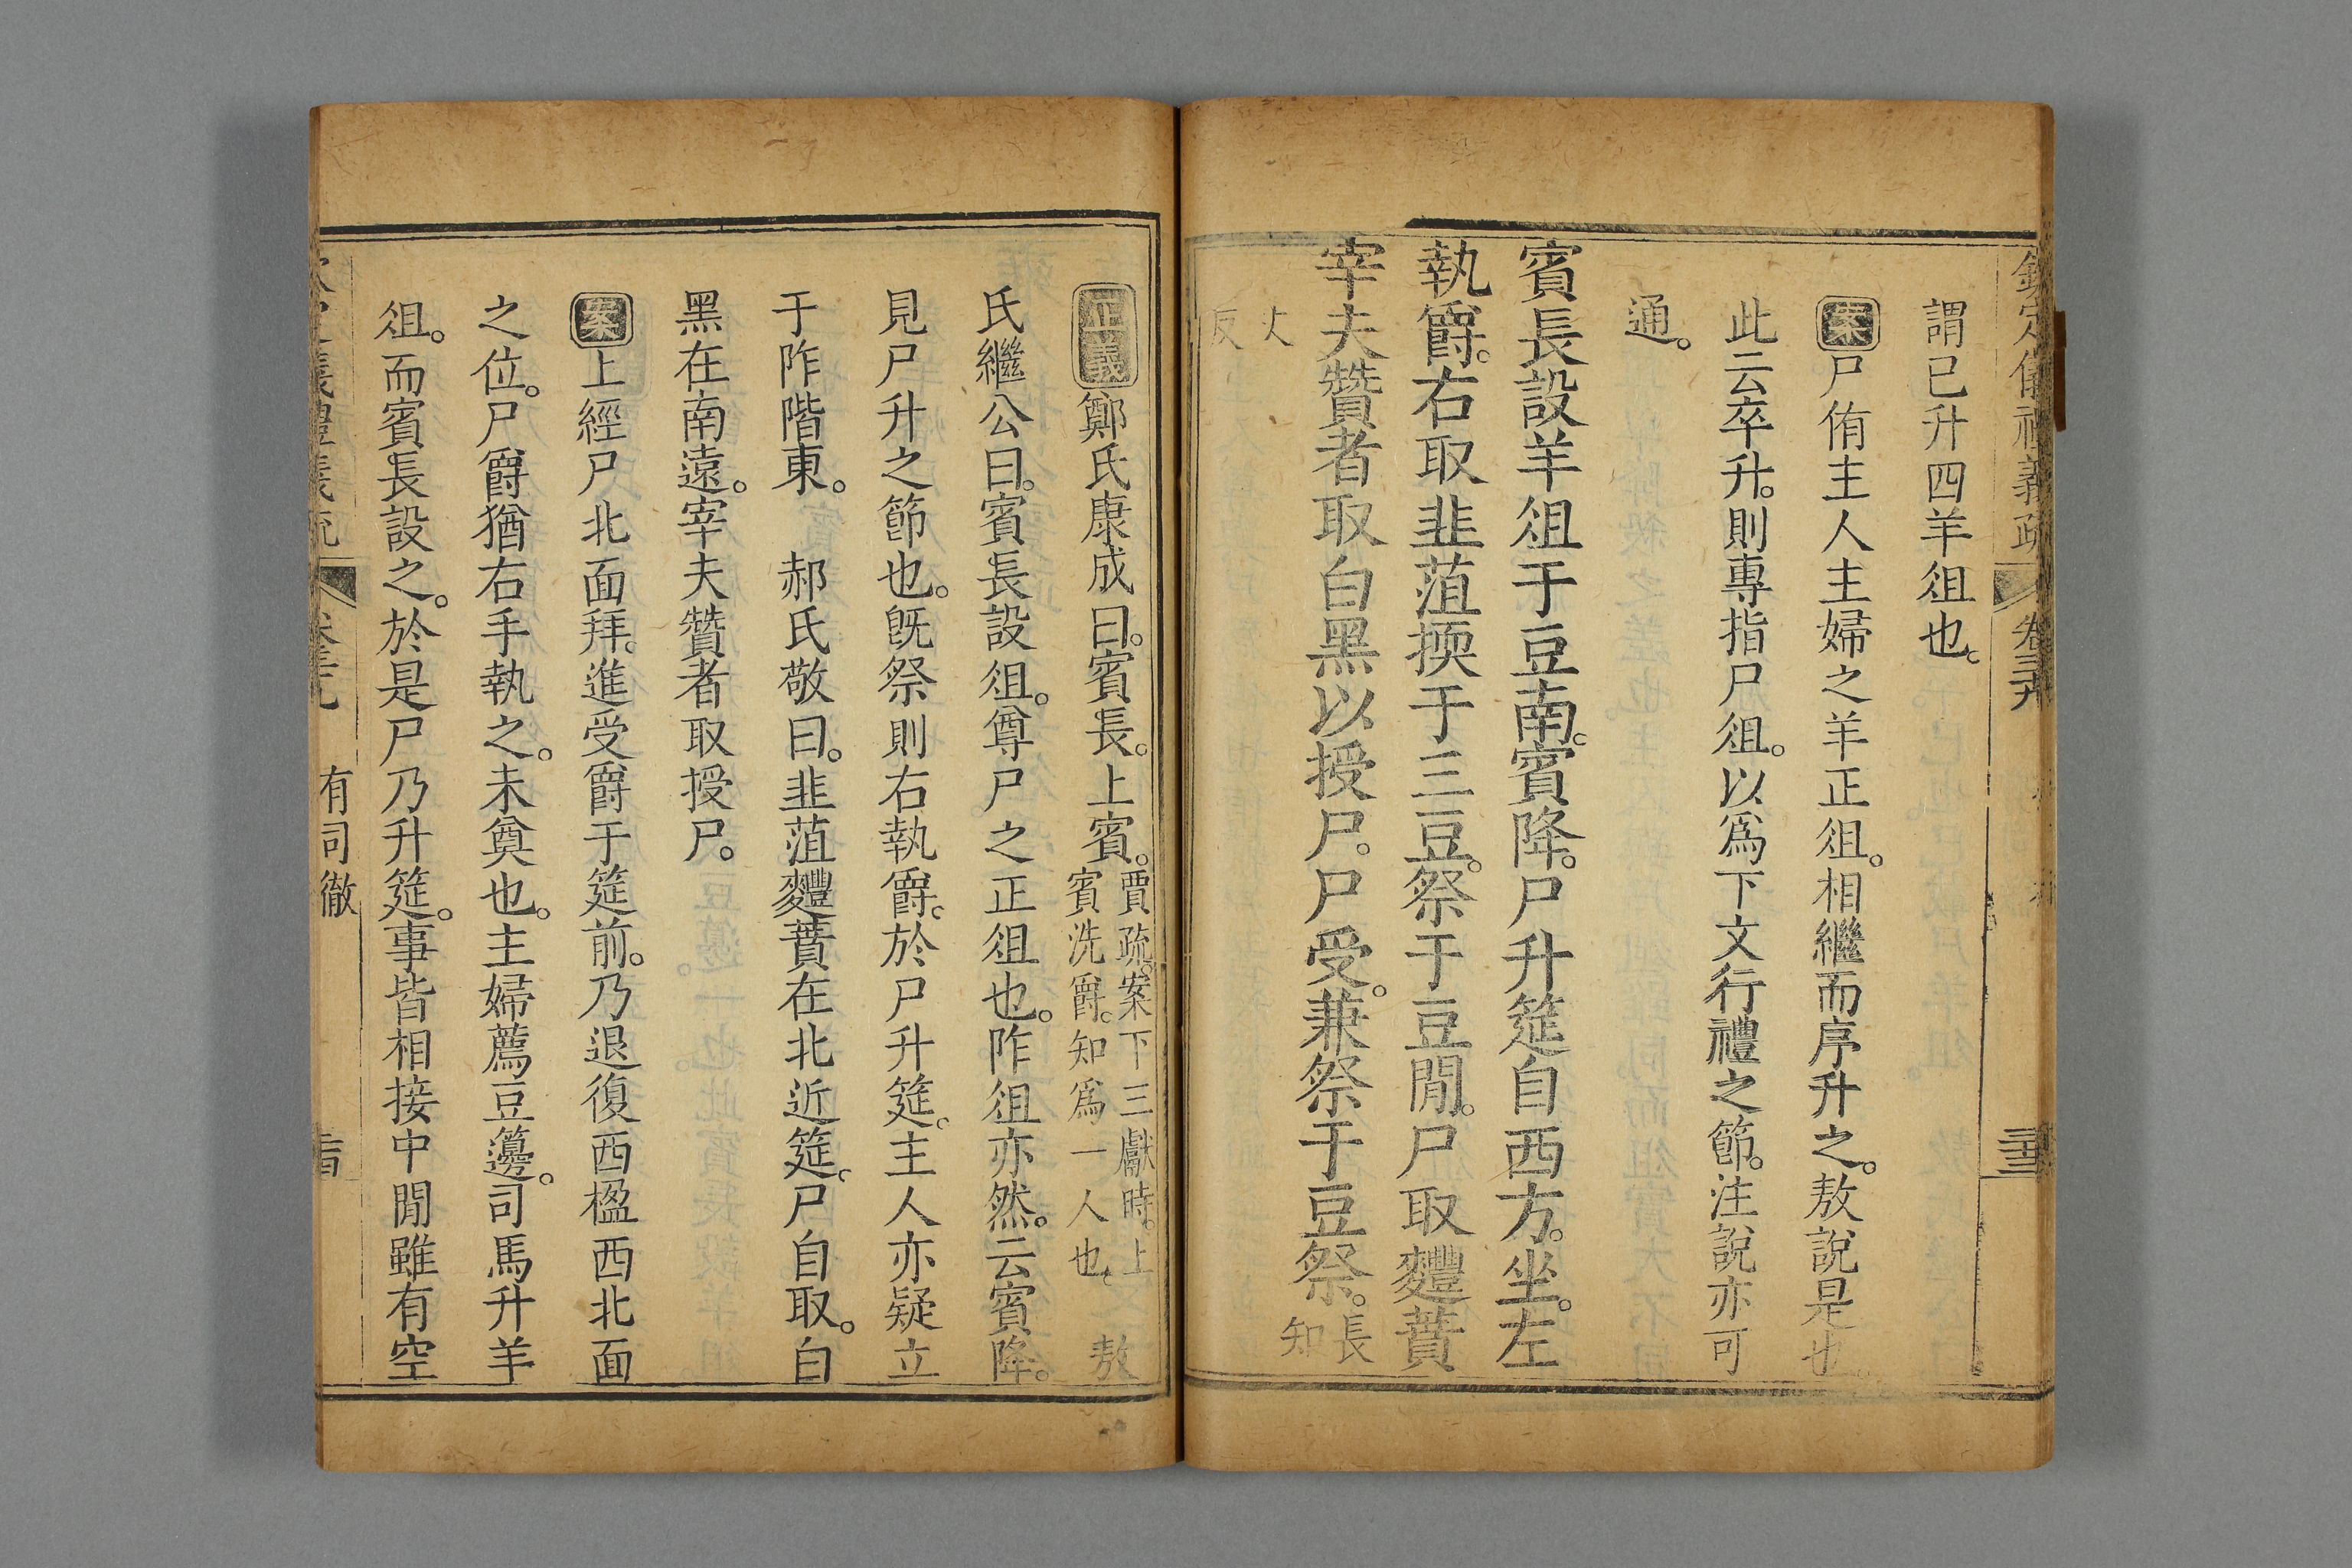 欽定儀禮義疏 卷三十九
謂已升四羊俎也。
案尸侑主人主婦之羊正俎。相繼而序升之。敖說是也。
此云卒升。則專指尸俎。以爲下文行禮之節。注說亦可
通。
賓長設羊俎于豆南。賓降。尸升筵自西方。坐。左
執爵。右取韭菹㨎于三豆。祭于豆閒。尸取麷蕡
宰夫贊者取白黑以授尸。尸受。兼祭于豆祭。長
知
丈
反
正義鄭氏康成曰。賓長。上賓。賈疏。案下三獻時。上
賓洗爵。知爲一人也。 敖
氏繼公曰。賓長設俎。尊尸之正俎也。阼俎亦然。云賓降。
見尸升之節也。旣祭則右執爵。於尸升筵。主人亦疑立
于阼階東。 郝氏敬曰。韭菹麷蕡在北近筵。尸自取。白
黑在南遠。宰夫贊者取授尸。
案上經尸北面拜。進受爵于筵前。乃退復西楹西北面
之位。尸爵猶右手執之。未奠也。主婦薦豆籩。司馬升羊
俎。而賓長設之。於是尸乃升筵。事皆相接中閒雖有空
有司徹